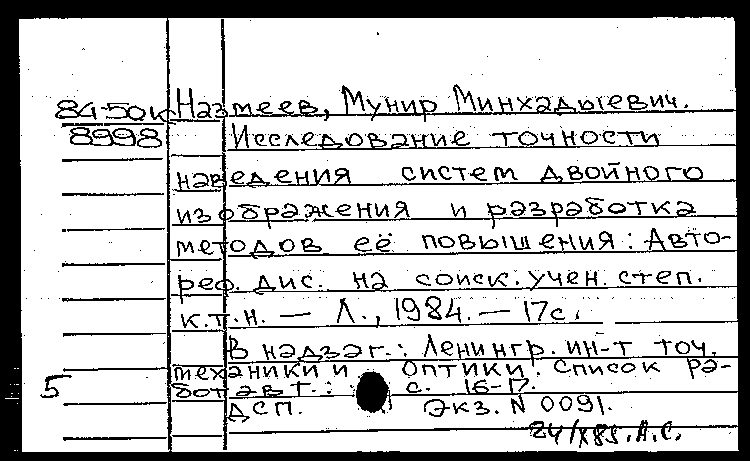 84-50к Назмеев, Мунир Минхадыевич.
8998 Исследование точности
наведения систем двойного
изображения и разработка
методов её повышения: Авто-
реф. дис. на соиск. учен. степ.
к.т.н. — Л., 1984. — 17с.
В надзаг.: Ленингр. ин-т точ.
механики и оптики. Список ра-
5 бот авт.: с. 16-17.
ДСП. Экз. N 0091.
24/X85. А.С.